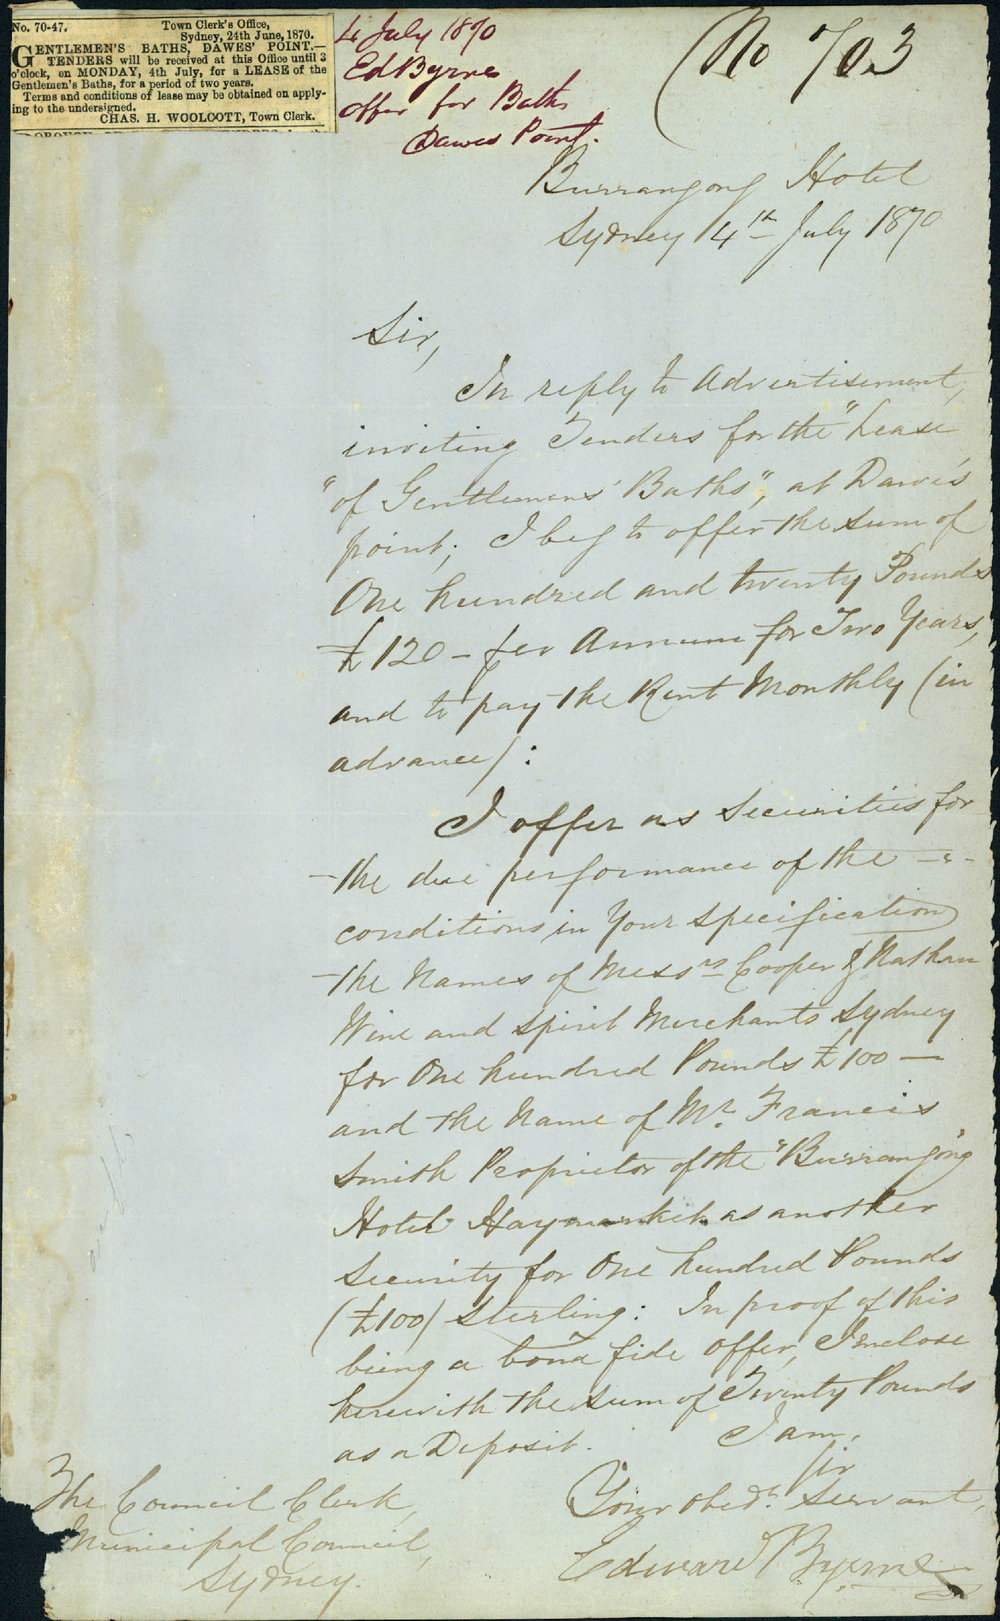 No. 70-47. Town Clerk's Office,
Sydney, 24th June, 1870.
GENTLEMEN'S BATHS, DAWES' POINT.—
TENDERS will be received at this Office until 3
o'clock, on MONDAY, 4th July, for a LEASE of the
Gentlemen's Baths, for a period of two years.
Terms and conditions of lease may be obtained on apply-
ing to the undersigned.
CHAS. H. WOOLCOTT, Town Clerk.
4 July 1870
Ed Byrne
offer for Baths
Dawes Point.
No 703
Burrangong Hotel
Sydney 4th July 1870
Sir,
In reply to Advertisement,
inviting Tenders for the "Lease
"of Gentlemens' Baths", at Dawe's
point; I beg to offer the sum of
One hundred and twenty Pounds
£120 – per Annum for Two Years,
and to pay the Rent Monthly (in
advance):
I offer as Securities for
the due performance of the
conditions in Your specification
the Names of Messrs Cooper & Nathan
Wine and Spirit Merchants Sydney
for One hundred Pounds £100 —
and the Name of Mr. Francis
Smith Proprietor of the "Burrangong
Hotel Haymarket as another
Security for One hundred Pounds
(£100) Sterling: In proof of this
being a bona fide offer, I enclose
herewith the sum of Twenty Pounds
as a Deposit. I am,
Sir
Your obedt. Servant,
Edward Byrne
The Council Clerk,
Municipal Council,
Sydney.